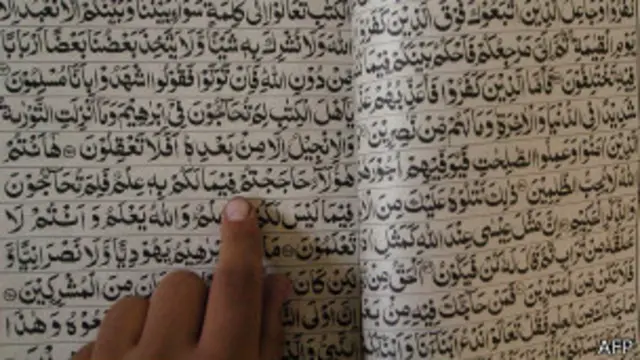 كَفَرُوْا وَجَاعِلُ الَّذِيْنَ اتَّبَعُوْكَ فَوْقَ الَّذِيْنَ كَفَرُوْٓا
يَوْمِ الْقِيٰمَةِ ثُمَّ اِلَيَّ مَرْجِعُكُمْ فَاَحْكُمُ بَيْنَكُمْ فِيْمَا
فِيْهِ تَخْتَلِفُوْنَ فَاَمَّا الَّذِيْنَ كَفَرُوْا فَاُعَذِّبُهُمْ
شَدِيْدًا فِي الدُّنْيَا وَالْاٰخِرَةِ وَمَا لَهُمْ مِّنْ نّٰصِرِيْنَ
الَّذِيْنَ اٰمَنُوْا وَعَمِلُوا الصّٰلِحٰتِ فَيُوَفِّيْهِمْ اُجُوْرَهُمْ
اللّٰهُ لَا يُحِبُّ الظّٰلِمِيْنَ ذٰلِكَ نَتْلُوْهُ عَلَيْكَ مِنَ
اِنَّ مَثَلَ عِيْسٰى عِنْدَ اللّٰهِ كَمَثَلِ
مِنْ تُرَابٍ ثُمَّ قَالَ لَهٗ كُنْ فَيَكُوْنُ اَلْحَقُّ مِنْ
فَلَا تَكُنْ مِّنَ الْمُمْتَرِيْنَ فَمَنْ حَآجَّكَ فِيْهِ مِنْۢ بَعْدِ
الْعِلْمِ فَقُلْ تَعَالَوْا نَدْعُ اَبْنَآءَنَا
الْكِتٰبِ تَعَالَوْا اِلٰى كَلِمَةٍ سَوَآءٍۢ بَيْنَنَا وَبَيْنَكُمْ اَلَّا
اللّٰهَ وَلَا نُشْرِكَ بِهٖ شَيْـًٔا وَّلَا يَتَّخِذَ بَعْضُنَا بَعْضًا اَرْبَابًا
مِّنْ دُوْنِ اللّٰهِ فَاِنْ تَوَلَّوْا فَقُوْلُوا اشْهَدُوْا بِاَنَّا مُسْلِمُوْنَ
يٰٓاَهْلَ الْكِتٰبِ لِمَ تُحَآجُّوْنَ فِيْٓ اِبْرٰهِيْمَ وَمَآ اُنْزِلَتِ التَّوْرٰىةُ
وَالْاِنْجِيْلُ اِلَّا مِنْۢ بَعْدِهٖ اَفَلَا تَعْقِلُوْنَ هٰٓاَنْتُمْ
هٰٓؤُلَآءِ حَاجَجْتُمْ فِيْمَا لَكُمْ بِهٖ عِلْمٌ فَلِمَ تُحَآجُّوْنَ
فِيْمَا لَيْسَ لَكُمْ عِلْمٌ وَاللّٰهُ يَعْلَمُ وَاَنْتُمْ لَا
تَعْلَمُوْنَ مَا اِبْرٰهِيْمُ يَهُوْدِيًّا وَّلَا نَصْرَانِيًّا وَّ
لٰكِنْ كَانَ مِنَ الْمُشْرِكِيْنَ
اِنَّ اَوْلَى وَهٰذَا
AFP